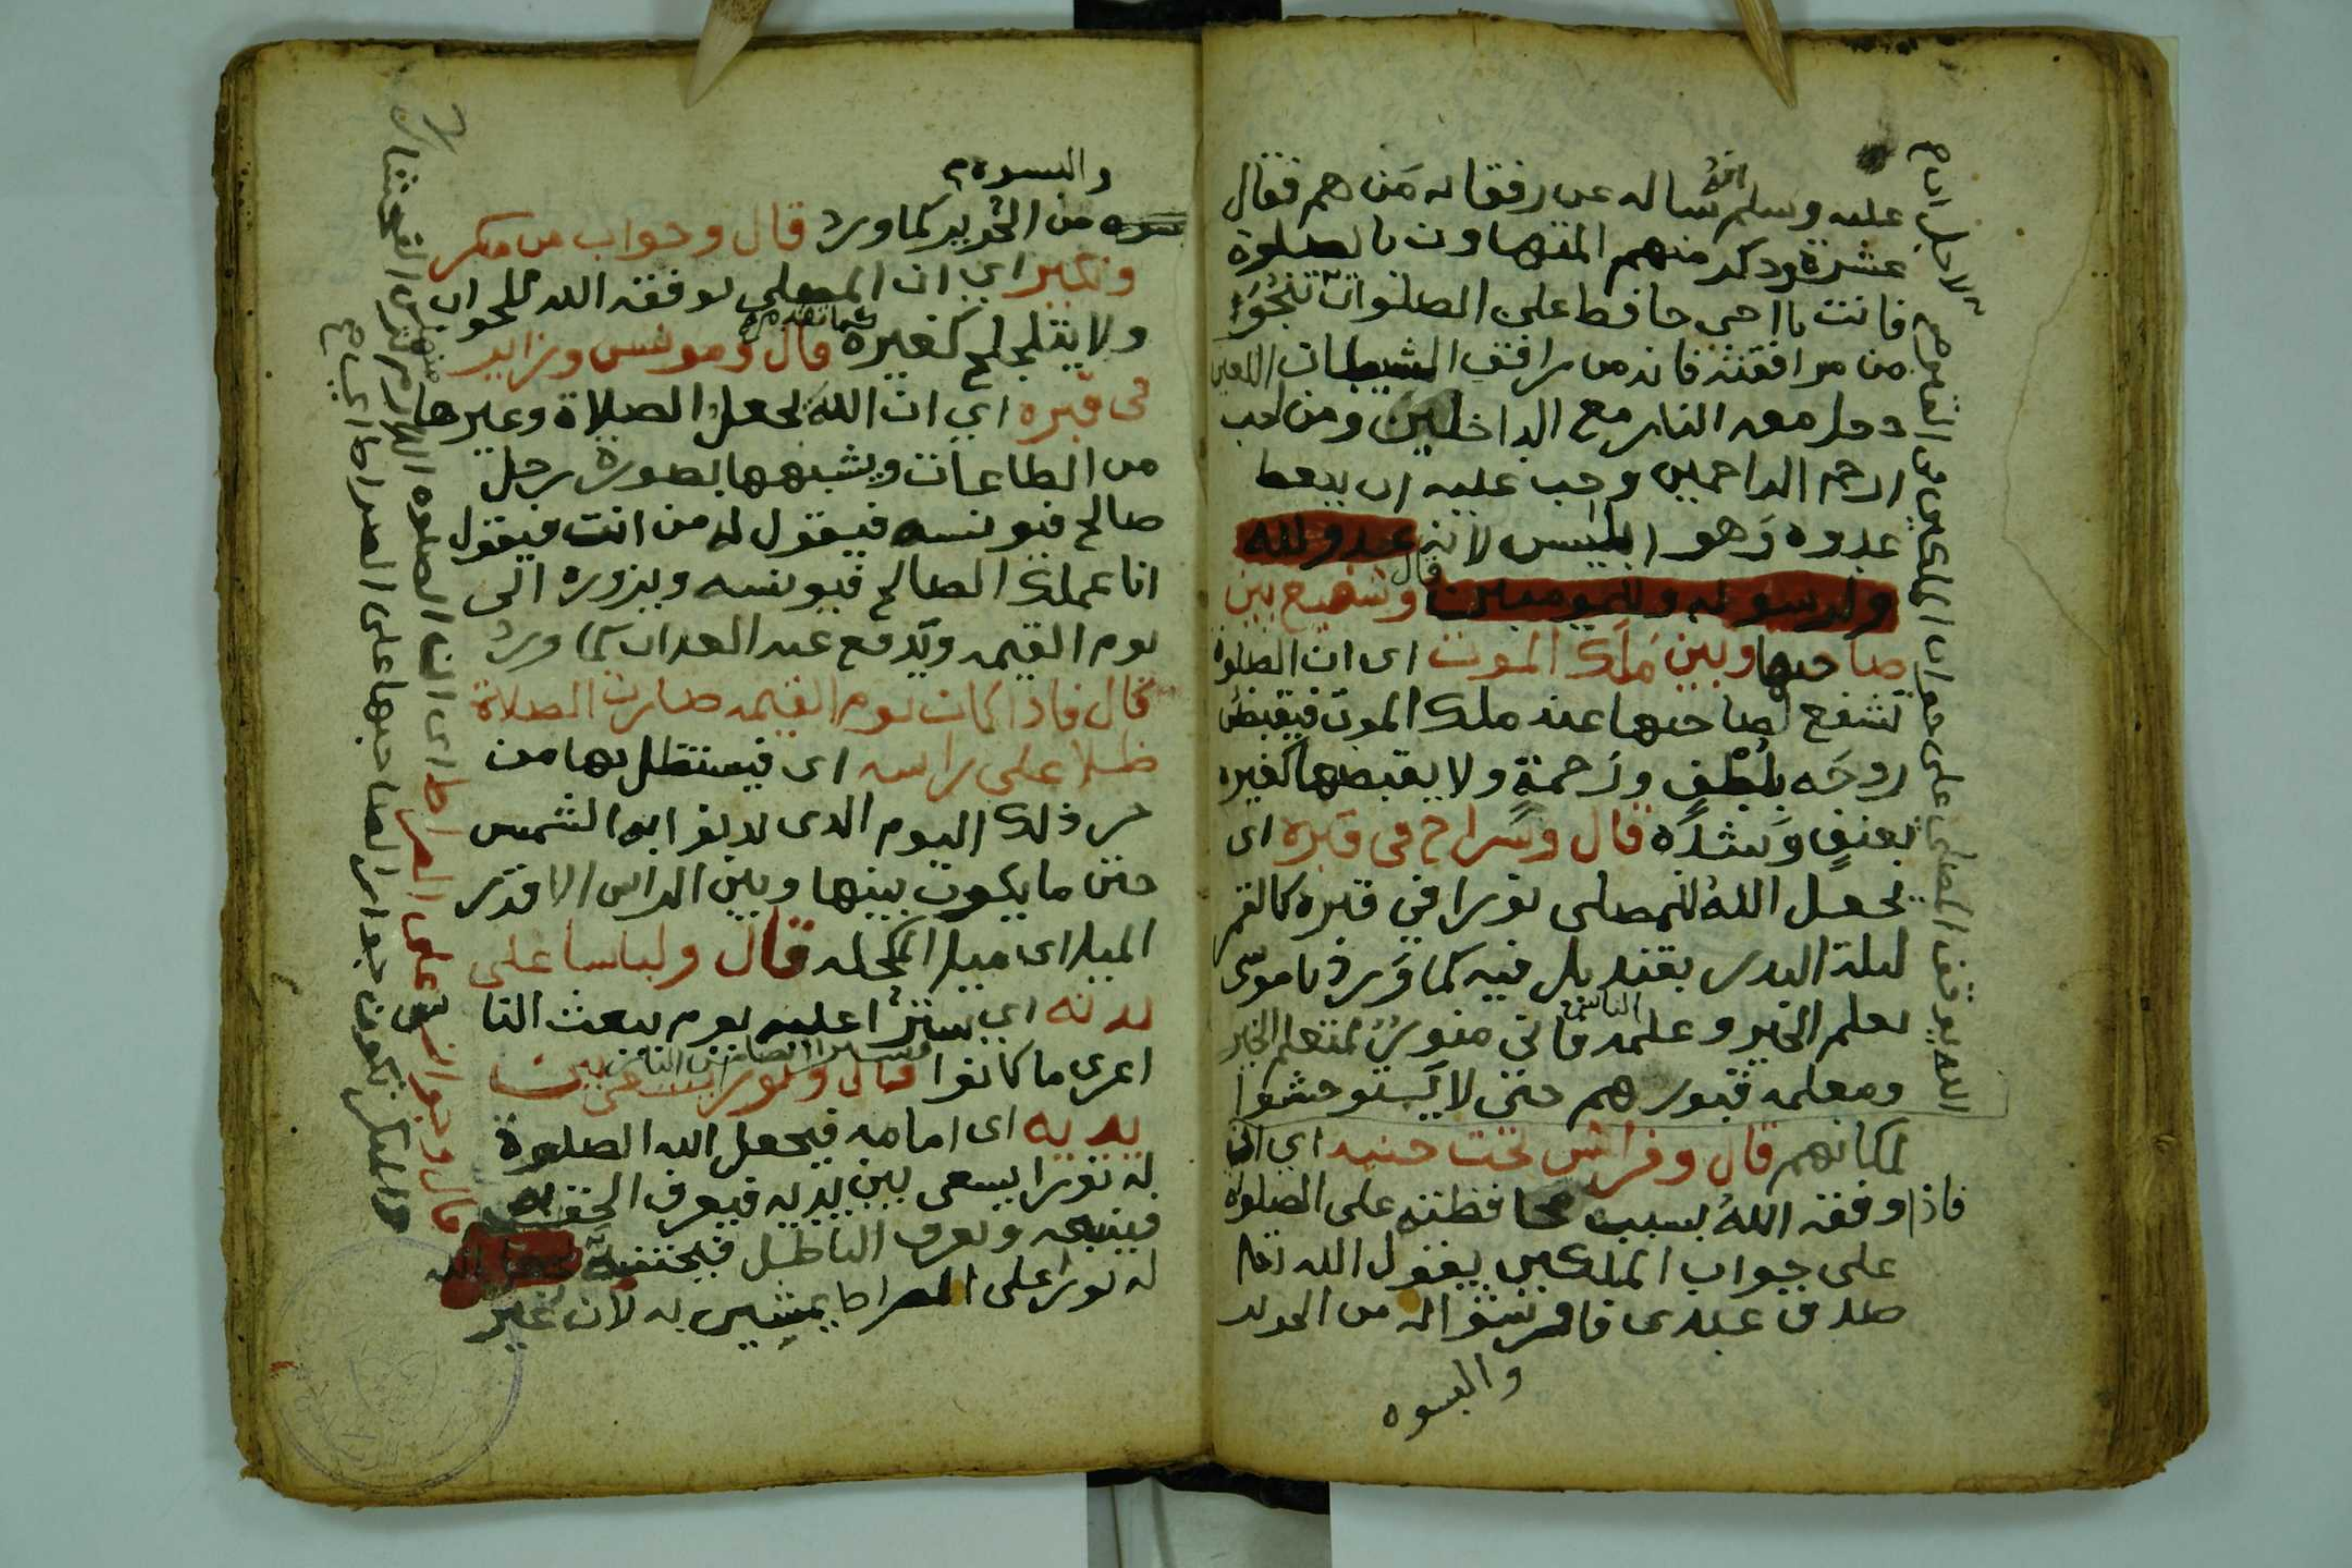 عليه وسلم انه ساله عن رفقائه من هم فقال
عشرة وذكر منهم المتهاون بالصلوة
فانت يا اخي حافظ على الصلوات تنجو
من مرافقته فانه من رافق الشيطان اللعين
دخل معه النار مع الداخلين ومن احب
ارحم الراحمين وجب عليه ان يبغض
عدوه وهو ابليس لانه عدو لله
ولرسوله وللمومنين قال وشفيع بين
صاحبها وبين ملك الموت اى ان الصلوة
تشفع لصاحبها عند ملك الموت فيقبض
روحه بلطف ورحمة ولا يقبضها كغيره
بعنف وشدة قال وسراج فى قبره اى
يجعل الله للمصلى نورا في قبره كالقمر
ليلة البدر بقنديل فيه كما ورد يا موسى
تعلم الخير وعلمه الناس فانى منور لمتعلم الخير
ومعلمه قبورهم حتى لا يستوحشوا
لمكانهم قال وفراش تحت جنبه اي ان
فاذا وفقه الله بسبب محافظته على الصلوة
على جواب الملكين يقول الله تعا
صدق عبدى فافرشوا له من الحرير
والبسوه
الله يوفق المصلى على جواب الملكين من القاموس لاجل ان
والبسوه
من الحرير كما ورد قال وجواب من منكر
ونكير اي ان المصلى يوفقه الله للجواب
ولا يتلجلج كغيره كما تقدم قال ومونس وزاير
فى قبره اي ان الله يجعل الصلاة وغيرها
من الطاعات ويشبهها بصورة رجل
صالح فيونسه فيقول له من انت فيقول
انا عملك الصالح فيونسه ويزوره الى
يوم القيمه ويدفع عنه العذاب كما ورد
قال فاذا كان يوم القيمه صارت الصلاة
ظلا على راسه اى فيستظل بها من
حر ذلك اليوم الذى تدنوا به الشمس
حتى ما يكون بينها وبين الراس الا قدر
الميل اى ميل المكحله قال ولباسا على
بدنه اي سترا عليه يوم يبعث النا
اعرى ما كانوا قال ونورا يسعى بين
يديه اى امامه فيجعل الله الصلوة
له نورا يسعى بين يديه فيعرف الحق
فيتبعه ويعرف الباطل فيجتنبه
له نورا على الصراط يمشى به لان غير
قال وجوازا على الصراط اى ان الصلوة
والمنكر تكون جوازا لصاحبها على الصراط